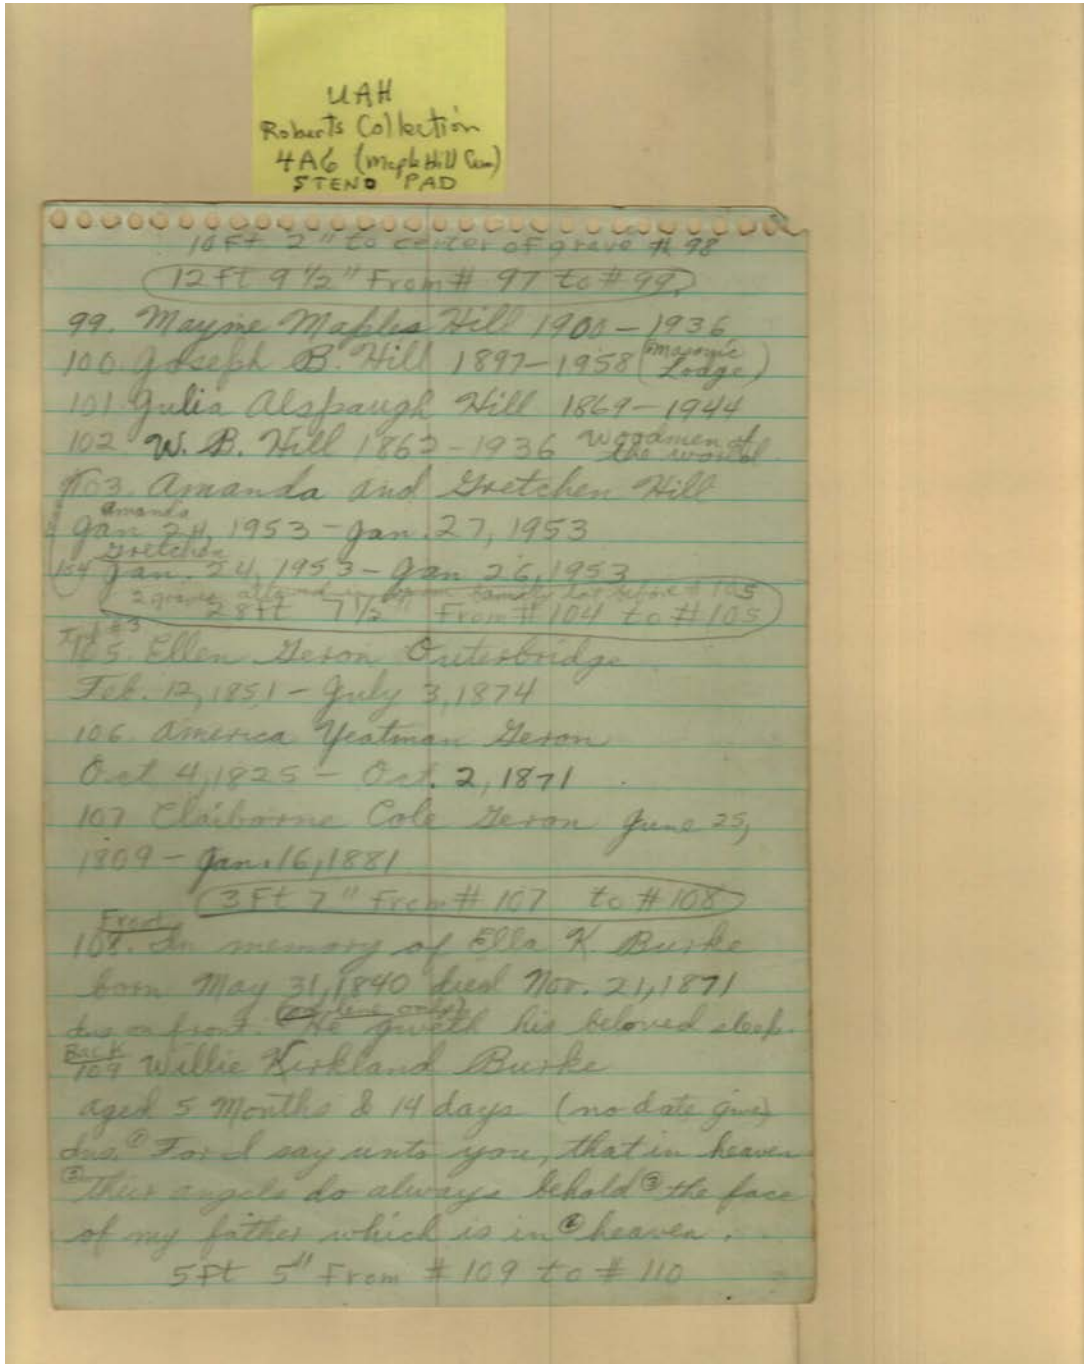 UAH
Roberts Collection
4A6 (Maple Hill Cem)
STENO PAD
10 Ft 2" to center of grave # 98
12 ft 9 1/2" From # 97 to # 99
99. Mayme Maples Hill 1900 – 1936
100 Joseph B. Hill 1897–1958 (Masonic
Lodge)
101. Julia Alspaugh Hill 1869–1944
102 W. B. Hill 1862–1936 Woodmen of
the world
103. Amanda and Gretchen Hill
Amanda
Jan 24, 1953 – Jan. 27, 1953
Gretchen
104 Jan. 24, 1953 – Jan 26, 1953
2 graves family lot before # 105
28 ft 7 1/2" From # 104 to # 105
105. Ellen Geron Outerbridge
Feb. 12, 1851 – July 3, 1874
106 America Yeatman Geron
Oct 4, 1825 – Oct. 2, 1871
107 Claiborne Cole Geron June 25,
1809 – Jan. 16, 1881
3 Ft 7" From # 107 to # 108
Front
108. In memory of Ella K. Burke
born May 31, 1840 died Nov. 21, 1871
(one line only)
on front. He giveth his beloved sleep.
Back
109 Willie Kirkland Burke
aged 5 Months & 14 days (no date given)
ins. ① For I say unto you, that in heaven
② Their angels do always behold ③ the face
of my father which is in ④ heaven.
5 Ft 5" From # 109 to # 110